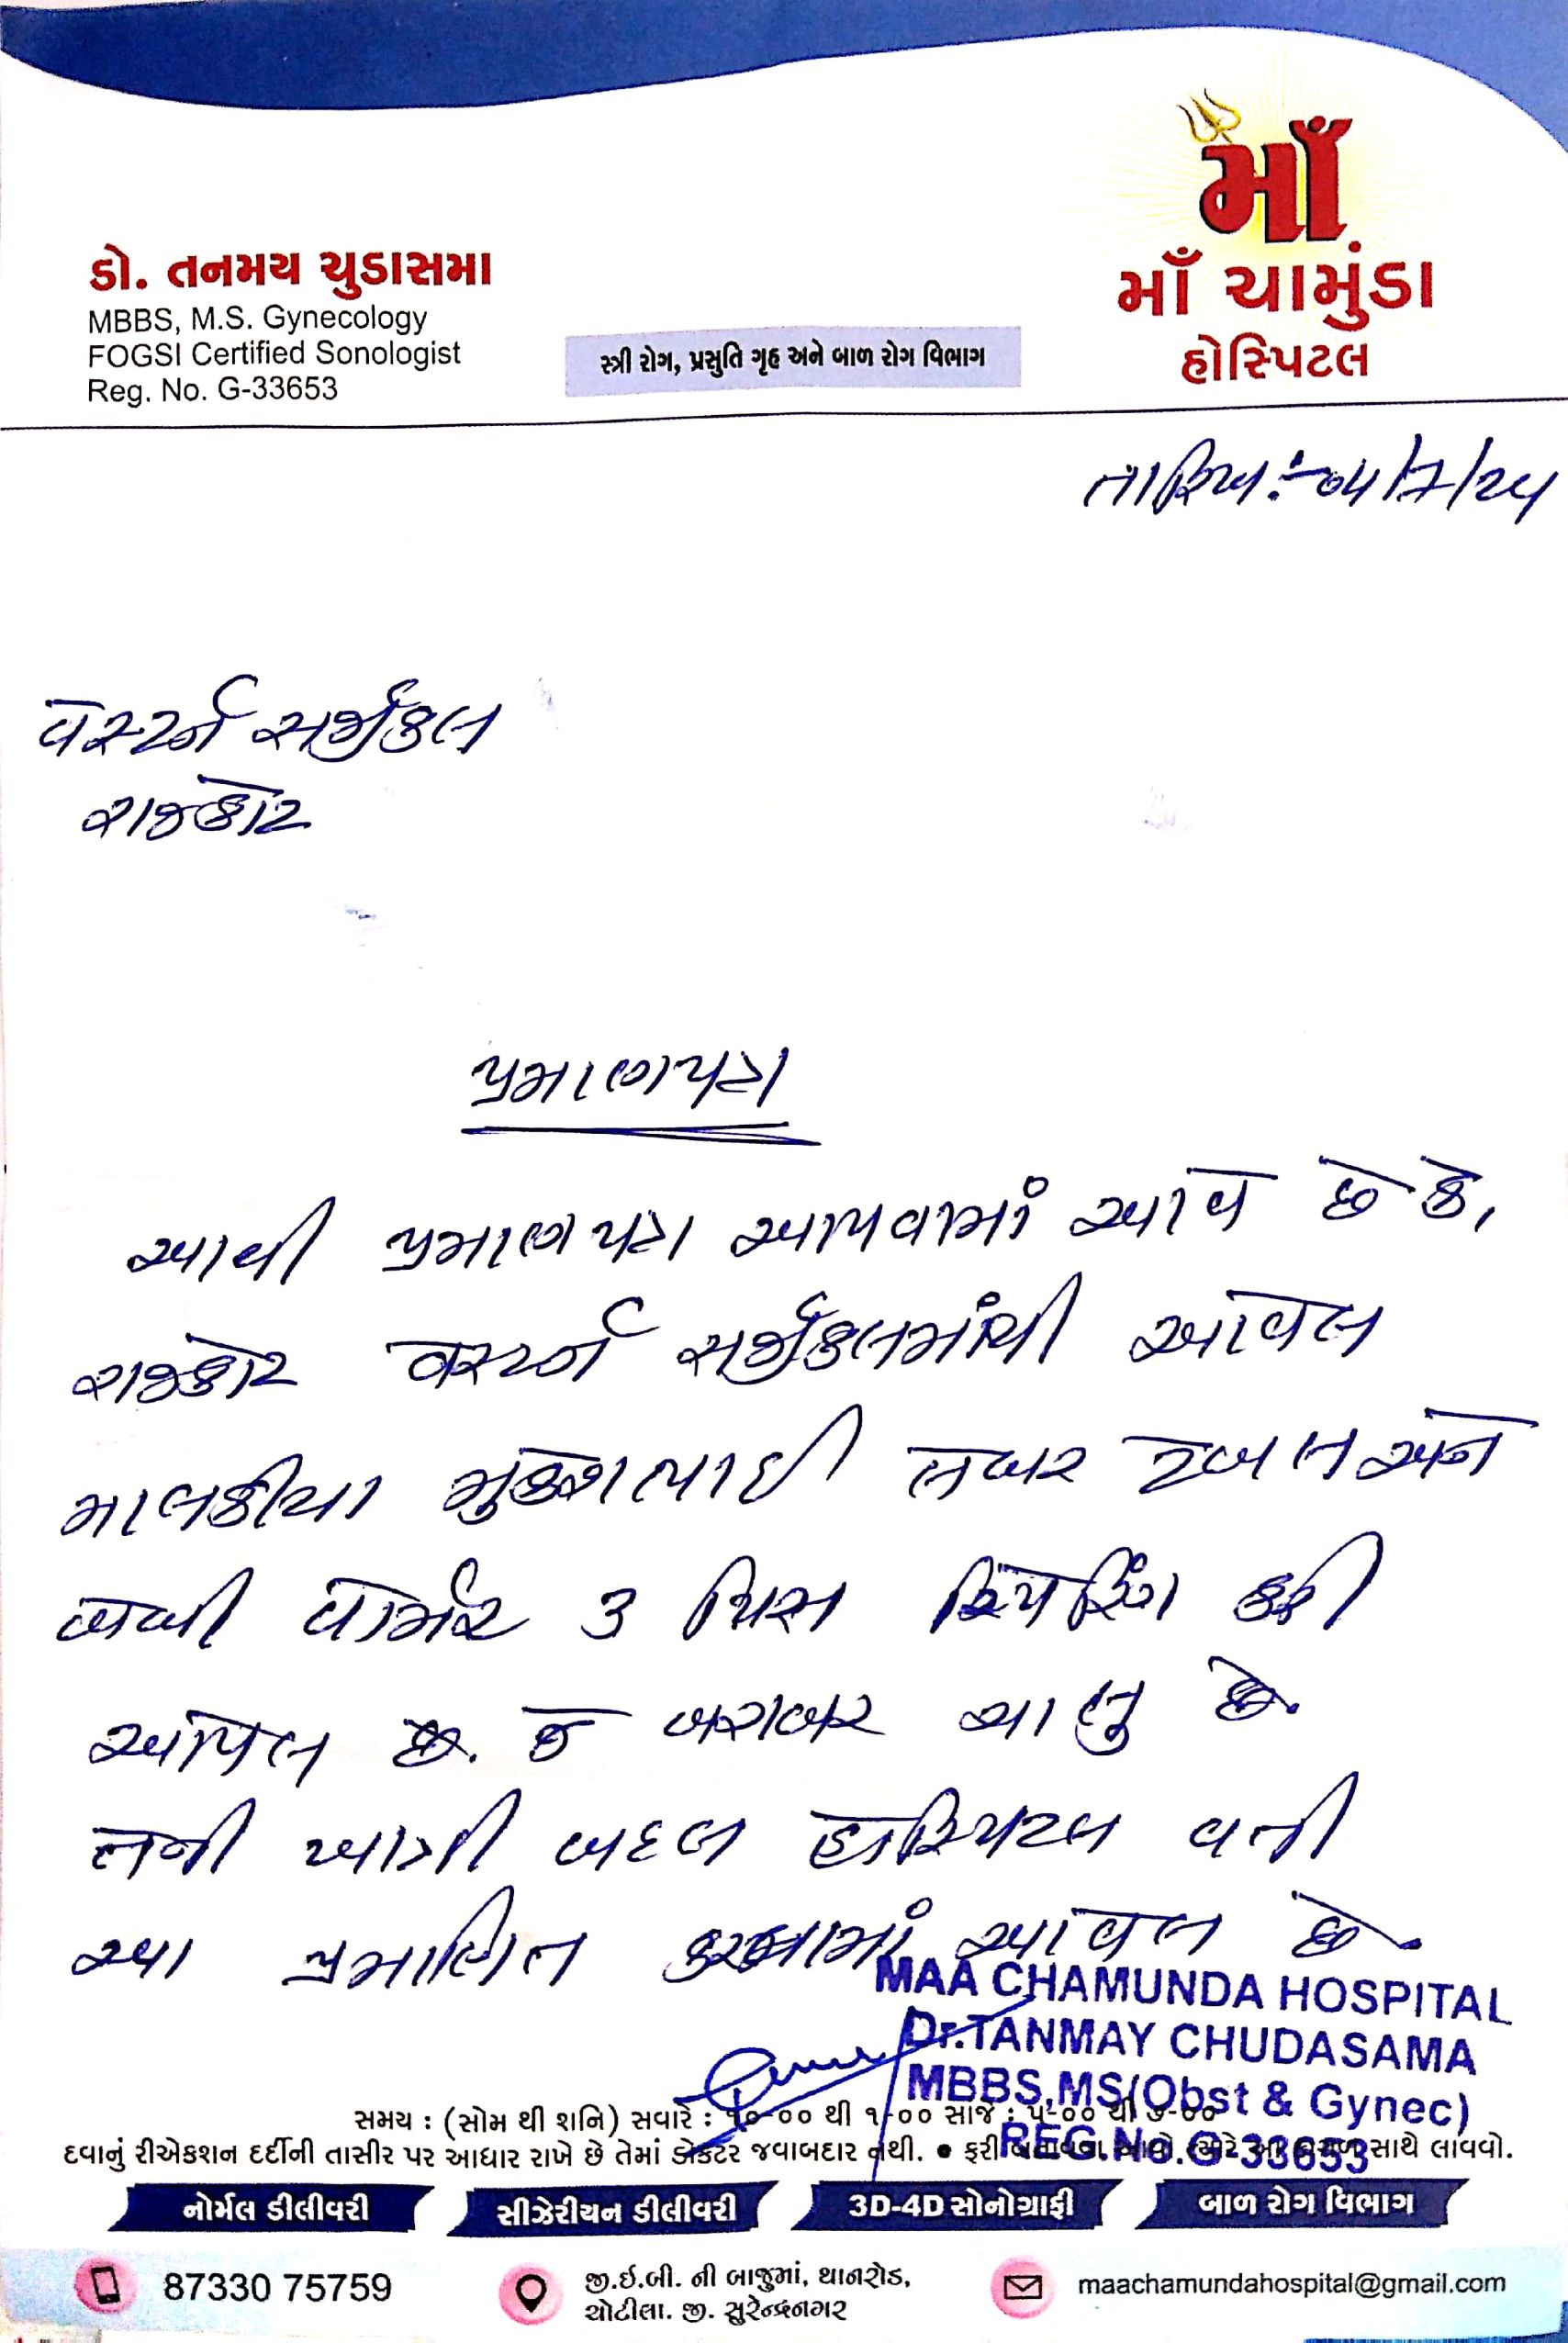 માઁ
માઁ ચામુંડા
હોસ્પિટલ
ડો. તનમય ચુડાસમા
MBBS, M.S. Gynecology
FOGSI Certified Sonologist
Reg. No. G-33653
સ્ત્રી રોગ, પ્રસુતિ ગૃહ અને બાળ રોગ વિભાગ
તારિખ :- ૦૫/૭/૨૫
સર્જીકલ
રાજકોટ
પ્રમાણપત્ર
આથી પ્રમાણપત્ર આપવામાં આવે છે કે,
રાજકોટ સર્જીકલમાંથી આવેલ
માલકીયા મુકેશભાઈ લેબર ટેબલ અને
બેબી વોર્મર ૩ પિસ રિપેરિંગ કરી
આપેલ છે. જે બરાબર ચાલુ છે.
તેની ખાત્રી બદલ હોસ્પિટલ વતી
આ પ્રમાણિત કરવામાં આવેલ છે.
MAA CHAMUNDA HOSPITAL
Dr.TANMAY CHUDASAMA
MBBS,MS(Obst & Gynec)
REG.No.G-33653
સમય : (સોમ થી શનિ) સવારે : ૧૦-૦૦ થી ૧-૦૦ સાંજે : ૫-૦૦ થી ૭-૦૦
દવાનું રીએકશન દર્દીની તાસીર પર આધાર રાખે છે તેમાં ડોક્ટર જવાબદાર નથી. ● ફરી સાથે લાવવો.
નોર્મલ ડીલીવરી
સીઝેરીયન ડીલીવરી
3D-4D સોનોગ્રાફી
બાળ રોગ વિભાગ
87330 75759
જી.ઇ.બી. ની બાજુમાં, થાનરોડ,
ચોટીલા. જી. સુરેન્દ્રનગર
maachamundahospital@gmail.com